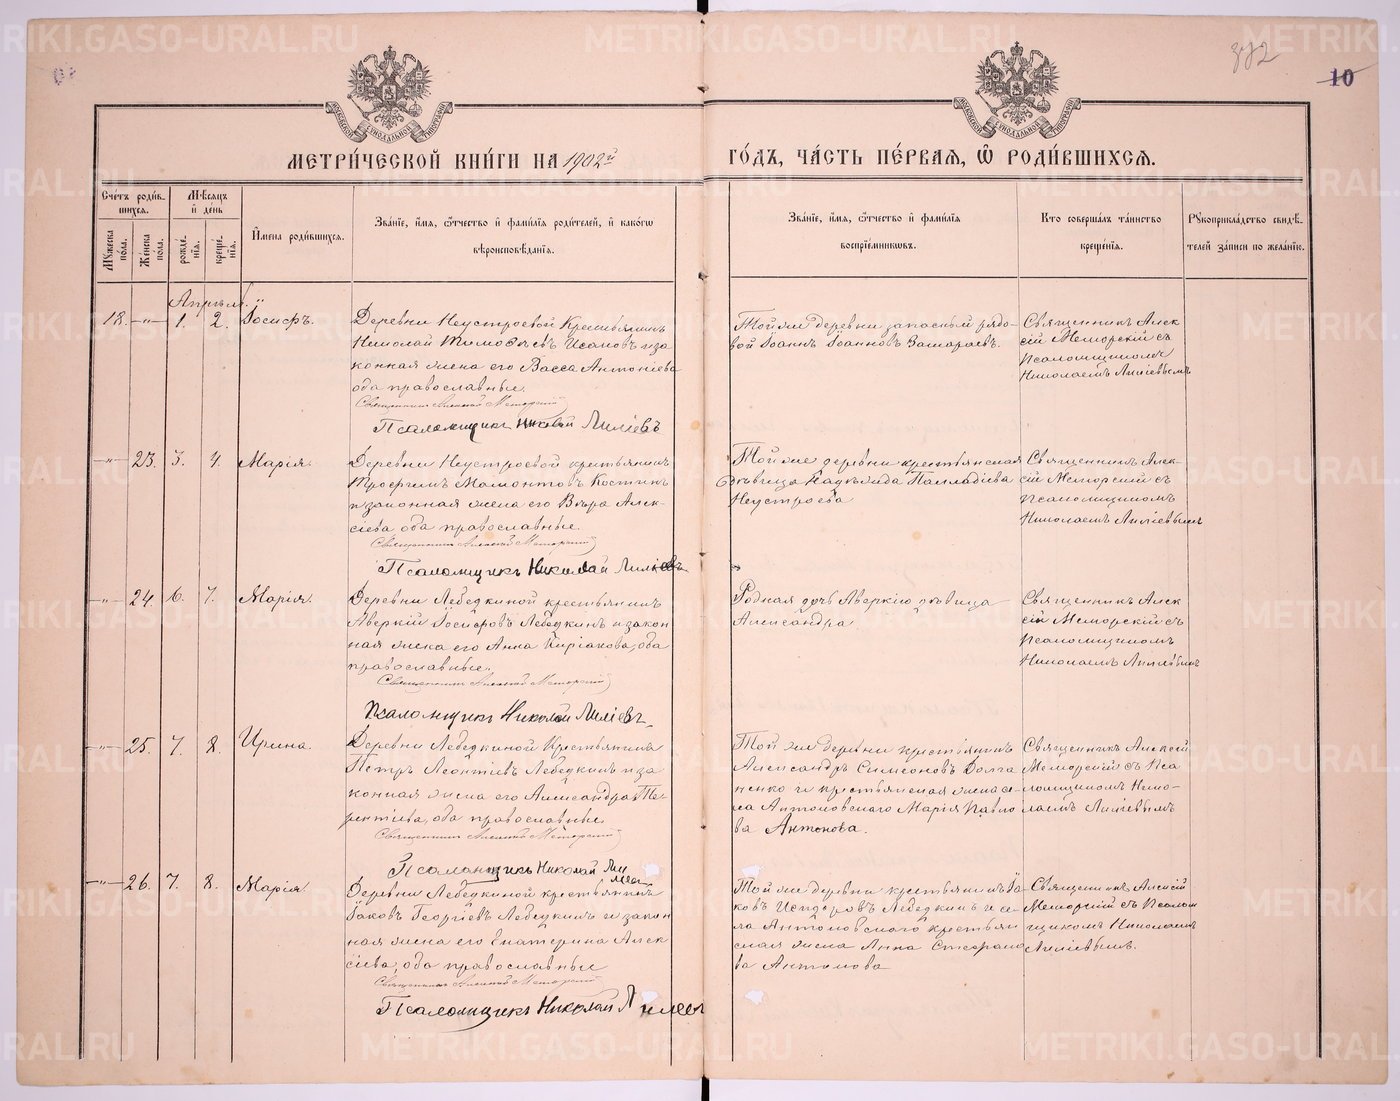 METRIKI.GASO-URAL.RU
372
10
МЕТРИ́ЧЕСКОЙ КНИ́ГИ НА 1902й
ГО́ДЪ, ЧА́СТЬ ПЕ́РВАЯ, Ѿ РОДИ́ВШИХСЯ.
Сче́тъ роди́в-
шихся.
Му́жеска по́ла.
Же́нска по́ла.
Мѣ́сяцъ и де́нь
рожде́-нія.
креще́-нія.
И́мена роди́вшихся.
Зва́ніе, и́мя, о́тчество и фами́лія роди́телей, и како́гѡ
вѣроисповѣ́данія.
Зва́ніе, и́мя, о́тчество и фами́лія
воспріе́мниковъ.
Кто соверша́лъ та́инство
креще́нія.
Рукоприкла́дство свидѣ́-
телей за́писи по жела́нію.
Апрѣль.
18. —"— 1. 2. Іосифъ.
Деревни Неустроевой Крестьянинъ
Николай Тимоѳеевъ Исаковъ и за
конная жена его Васса Антоніева
оба православные.
Священникъ Алексій Меморскій
Псаломщикъ Николай Лиліевъ
Той же деревни запасный рядо-
вой Іоаннъ Іоанновъ
Священникъ Алек
сій Меморскій съ
Псаломщикомъ
Николаемъ Лиліевымъ
—"— 23. 3. 4. Марія.
Деревни Неустроевой крестьянинъ
Трофимъ Мамонтовъ Костинъ
и законная жена его Вѣра Алек-
сіева оба православные.
Священникъ Алексій Меморскій
Псаломщикъ Николай Лиліевъ
Той же деревни крестьянская
дѣвица Палладіева
Неустроева
Священникъ Алек-
сій Меморскій съ
Псаломщикомъ
Николаемъ Лиліевымъ
—"— 24. 6. 7. Марія.
Деревни Лебедкиной крестьянинъ
Аверкій Іосифовъ Лебедкинъ и закон
ная жена его Анна Киріакова, оба
православные.
Священникъ Алексій Меморскій
Псаломщикъ Николай Лиліевъ
Родная дочь Аверкія дѣвица
Александра
Священникъ Алек
сій Меморскій съ
Псаломщикомъ
Николаемъ Лиліевымъ
—"— 25. 7. 8. Ирина.
Деревни Лебедкиной Крестьянинъ
Петръ Леонтіевъ Лебедкинъ и за
конная жена его Александра Те-
рентіева, оба православные.
Священникъ Алексій Меморскій
Псаломщикъ Николай Лилиев
Той же деревни крестьянинъ
Александръ Симеоновъ Долга
ненко и крестьянская жена се-
ла Антоновскаго Марія Павло
ва Антонова.
Священникъ Алексій
Меморскій съ Пса
ломщикомъ Нико-
лаемъ Лиліевымъ
—"— 26. 7. 8. Марія.
Деревни Лебедкиной крестьянинъ
Іаковъ Георгіевъ Лебедкинъ и закон
ная жена его Екатерина Алек
сіева, оба православные
Священникъ Алексій Меморскій
Псаломщикъ Николай Лилиев
Той же деревни крестьянинъ Іа-
ковъ Исидоровъ Лебедкинъ и се-
ла Антоновскаго крестьян
ская жена Анна Стефано
ва Антонова
Священникъ Алексій
Меморскій съ Псалом
щикомъ Николаемъ
Лиліевымъ.